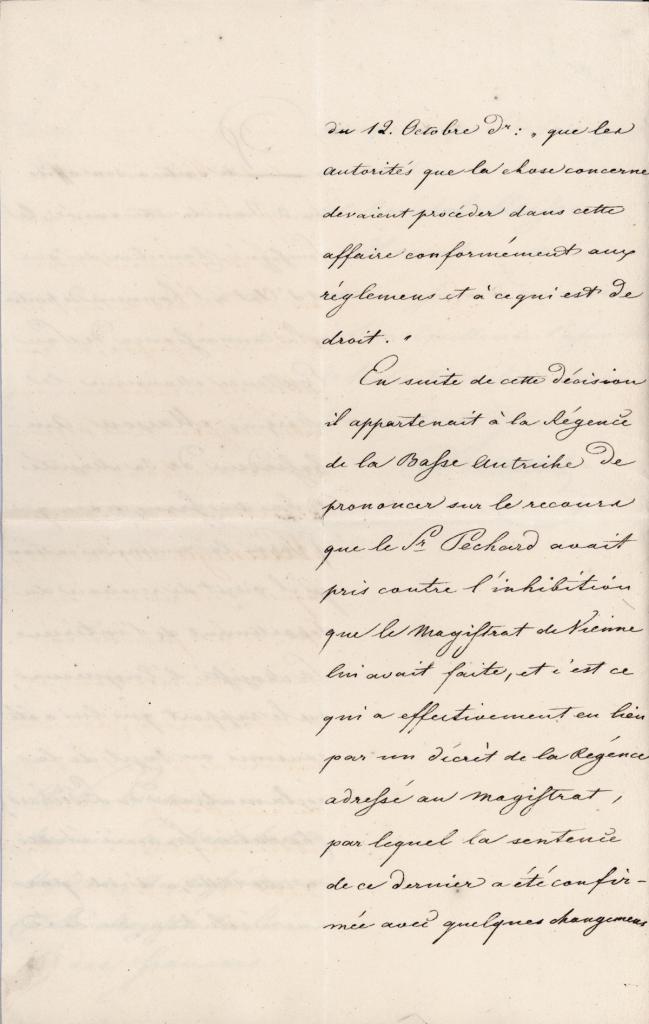 du 12. Octobre dr: „ que les
autorités que la chose concerne
devaient procéder dans cette
affaire conformément aux
réglemens et à ce qui est de
droit. "
En suite de cette décision
il appartenait à la Régence
de la Basse Autriche de
prononcer sur le recours
que le Sr. Pechard avait
pris contre l'inhibition
que le Magistrat de Vienne
lui avait faite, et c'est ce
qui a effectivement eu lieu
par un décrèt de la Régence
adressé au Magistrat,
par lequel la sentence
de ce dernier a été confir-
mée avec quelques changemens